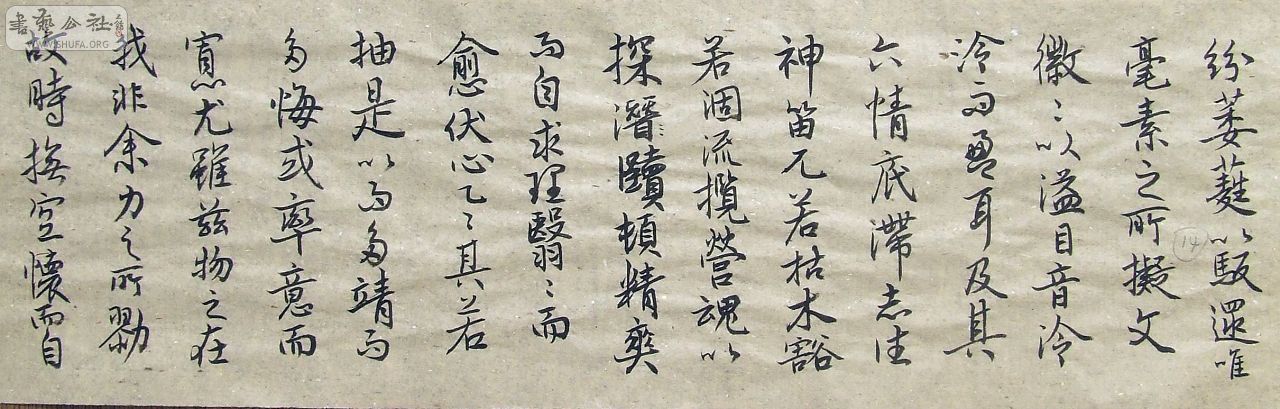 紛葳蕤以馺遝唯
毫素之所擬文
徽〻以溢目音冷
泠而盈耳及其
六情底滯志往
神留兀若枯木豁
若涸流攬營魂以
探潛賾頓精爽
而自求理翳〻而
愈伏心乙〻其若
抽是以而多竭而
多悔或率意而
寡尤雖茲物之在
我非余力之所勠
故時撫空懷而自
14
書藝公社
WWW.SHUFA.ORG